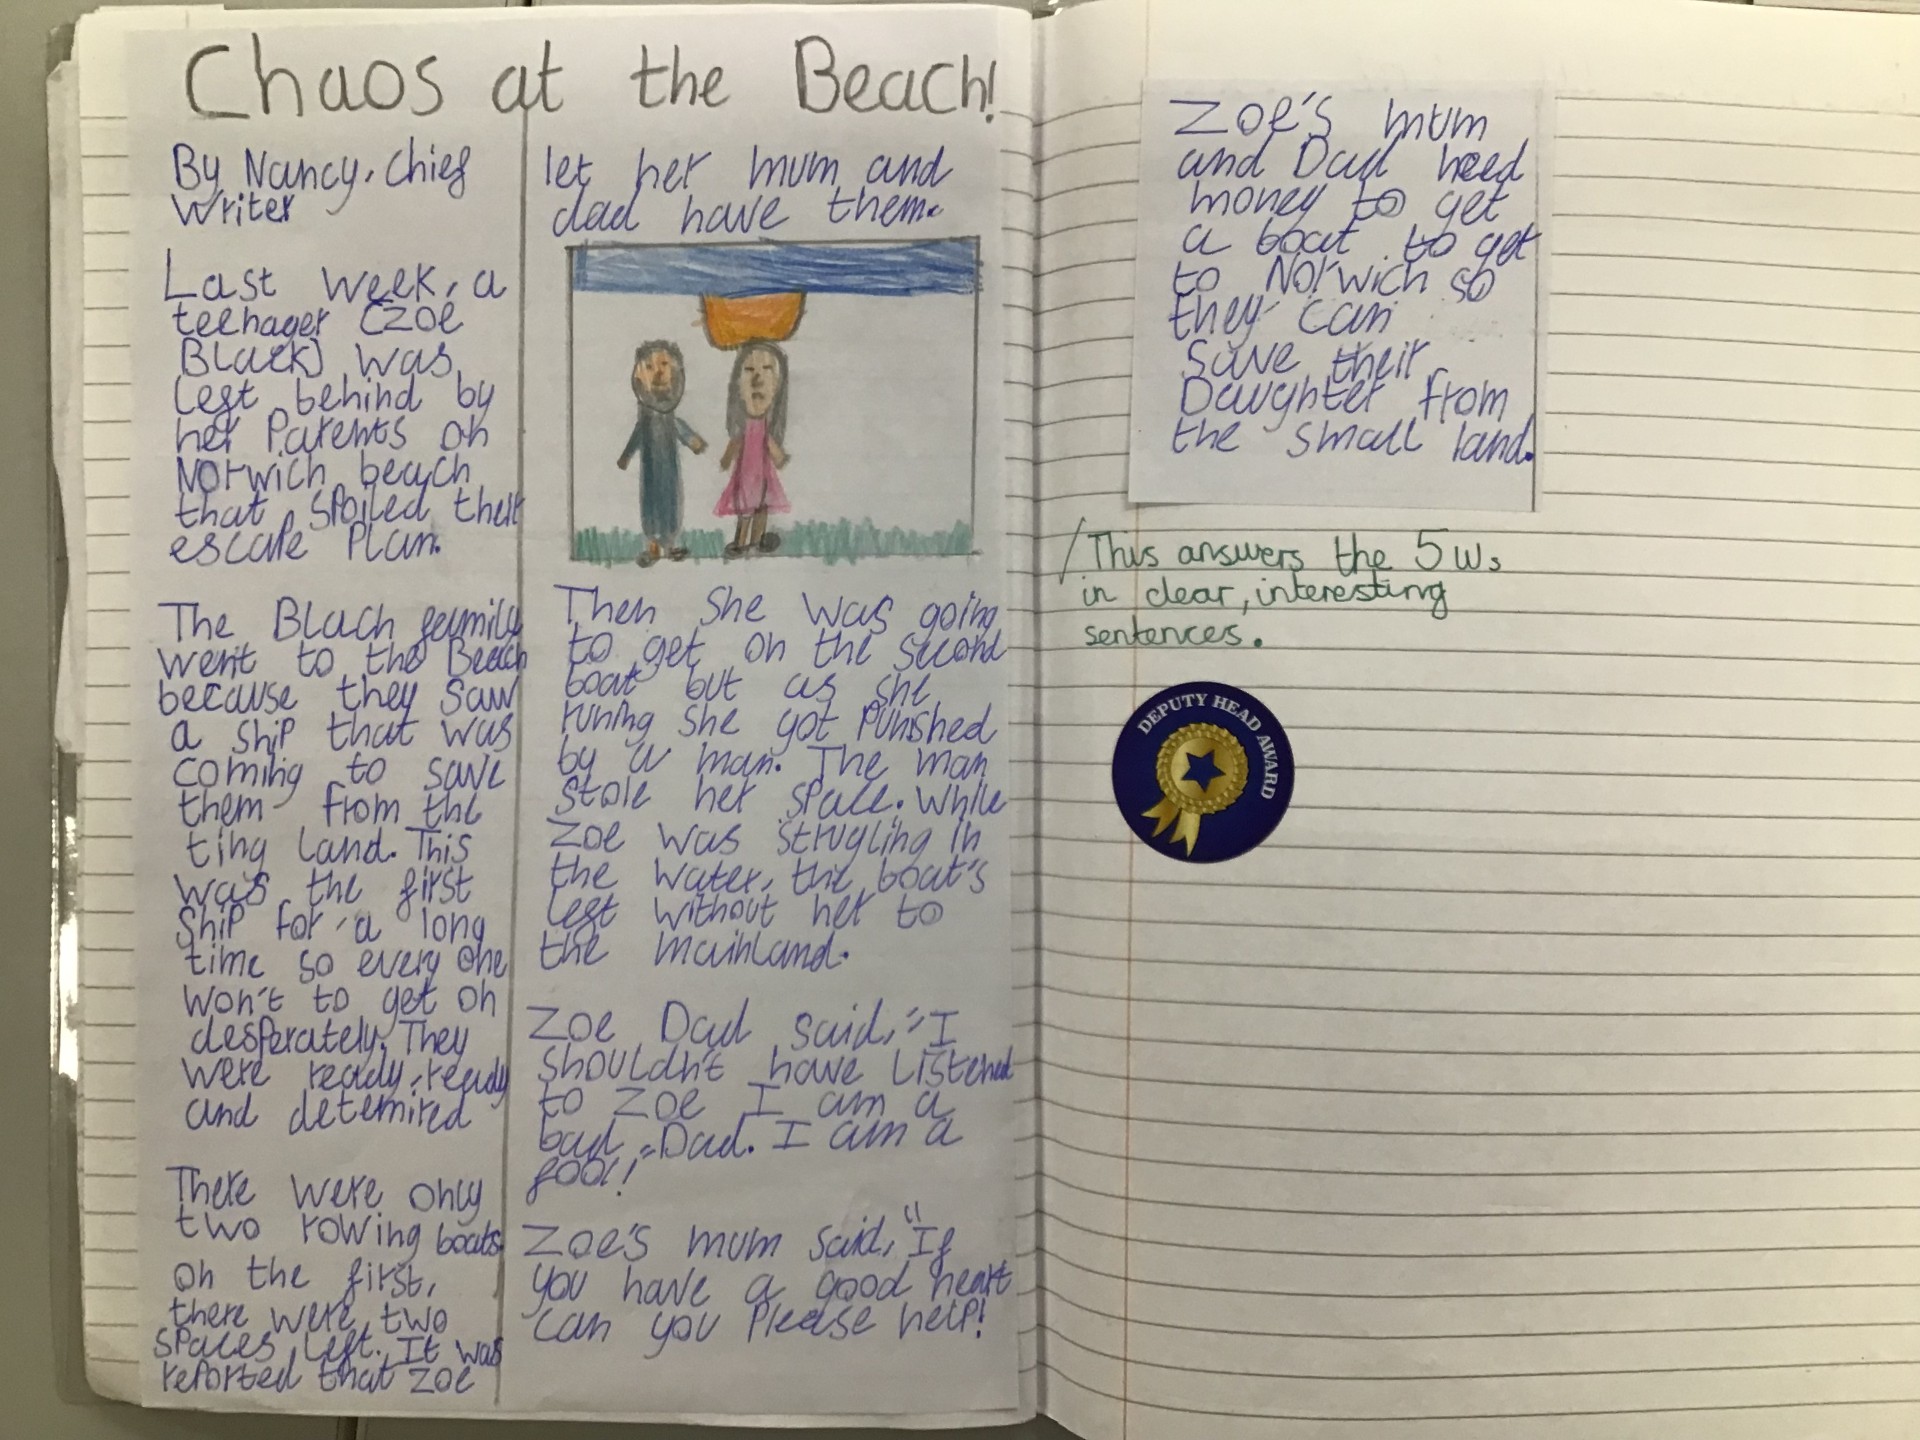 Chaos at the Beach!
By Nancy, Chief
Writer
Last week, a
teenager (Zoe
Black) was
left behind by
her Parents on
Norwich beach
that spoiled their
escape Plan.
The Blach family
went to the Beach
because they saw
a ship that was
coming to save
them from the
tiny land. This
was the first
Ship for a long
time so every one
won't to get on
desperately. They
were ready, ready
and detemired
There were only
two rowing boats
on the first,
there were two
spaces left. It was
reported that Zoe
let her mum and
dad have them.
Then she was going
to get on the second
boat but as she
runing she got Punished
by a man. The man
stole her space. While
Zoe was strugling in
the water, the boat's
left without her to
the mainland.
Zoe Dad said, "I
shouldn't have Listened
to Zoe I am a
bad Dad. I am a
fool!"
Zoe's mum said, "If
you have a good heart
can you Please help!
Zoe's mum
and Dad need
money to get
a boat to get
to Norwich so
they can
save their
Daughter from
the small land.
This answers the 5 Ws
in clear, interesting
sentences.
DEPUTY HEAD AWARD